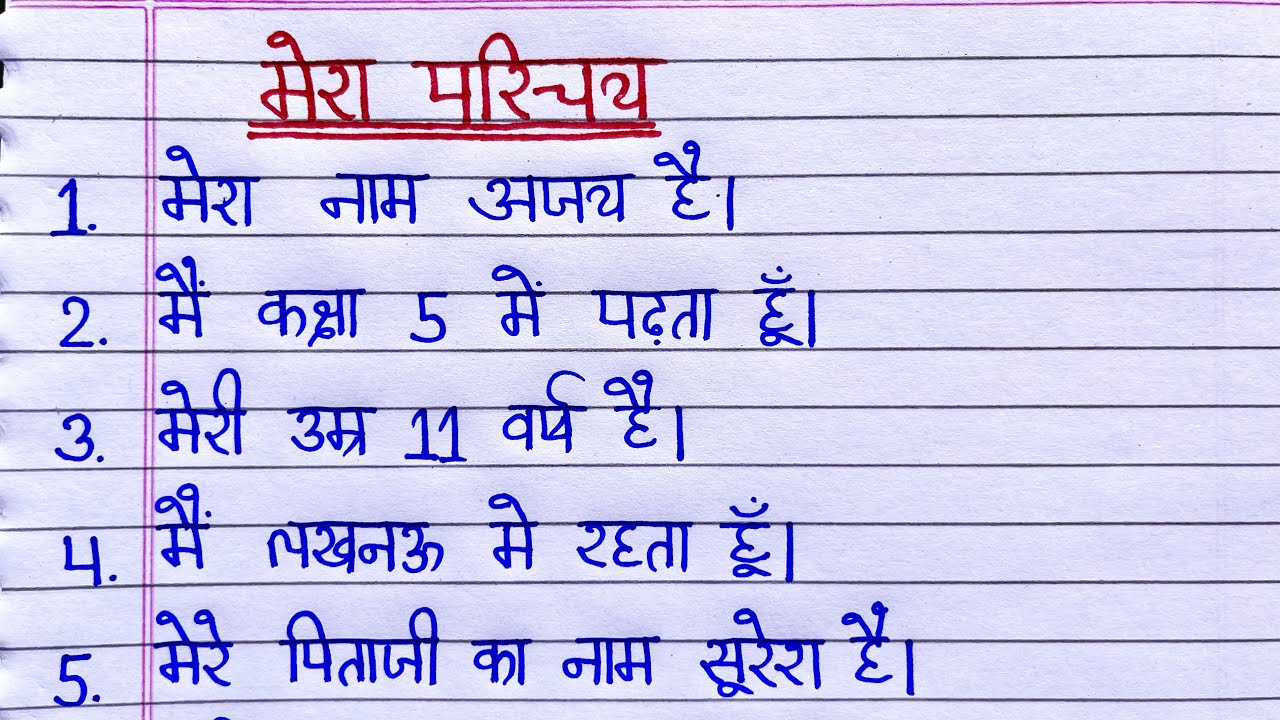 मेरा परिचय
1. मेरा नाम अजय है।
2. मैं कक्षा 5 में पढ़ता हूँ।
3. मेरी उम्र 11 वर्ष है।
4. मैं लखनऊ मे रहता हूँ।
5. मेरे पिताजी का नाम सूरेश है।